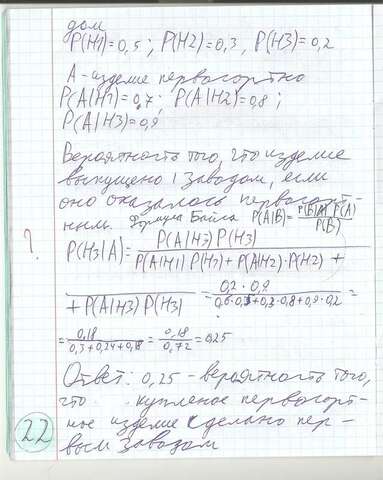 дом
P(H1)=0,5; P(H2)=0,3, P(H3)=0,2
A - изделие первосортно
P(A|H1)=0,7; P(A|H2)=0,8;
P(A|H3)=0,9
Вероятность того, что изделие
выпущено 1 заводом, если
оно оказалось первосорт-
ным. Формула Байеса P(A|B)=P(B|A) P(A)/P(B)
?
P(H3|A)= P(A|H3) P(H3)
P(A|H1) P(H1)+P(A|H2)·P(H2)+
+P(A|H3) P(H3) = 0,2·0,9
0,6·0,5+0,3·0,8+0,9·0,2 =
= 0,18/0,3+0,24+0,18 = 0,18/0,72 = 0,25
Ответ: 0,25 - вероятность того,
что купленое первосорт-
ное изделие сделано пер-
вым заводом
22